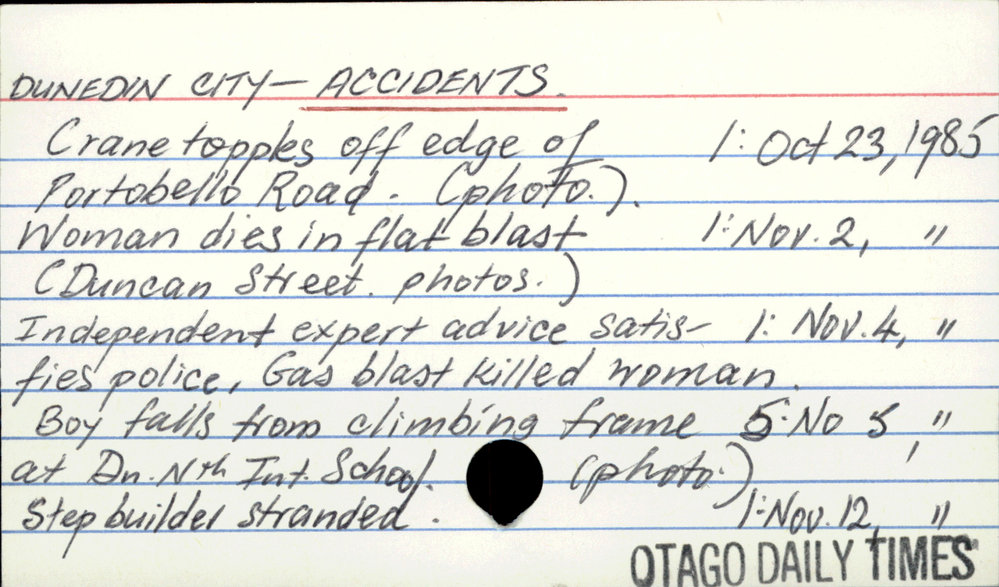 DUNEDIN CITY — ACCIDENTS.
Crane topples off edge of 1: Oct 23, 1985
Portobello Road. (photo.).
Woman dies in flat blast 1: Nov. 2, "
(Duncan Street. photos.)
Independent expert advice satis- 1: Nov. 4, "
fies police, Gas blast killed woman.
Boy falls from climbing frame 5: No 5, "
at Dn. Nth Int. School. (photo.)
Step builder stranded. 1: Nov. 12, "
OTAGO DAILY TIMES